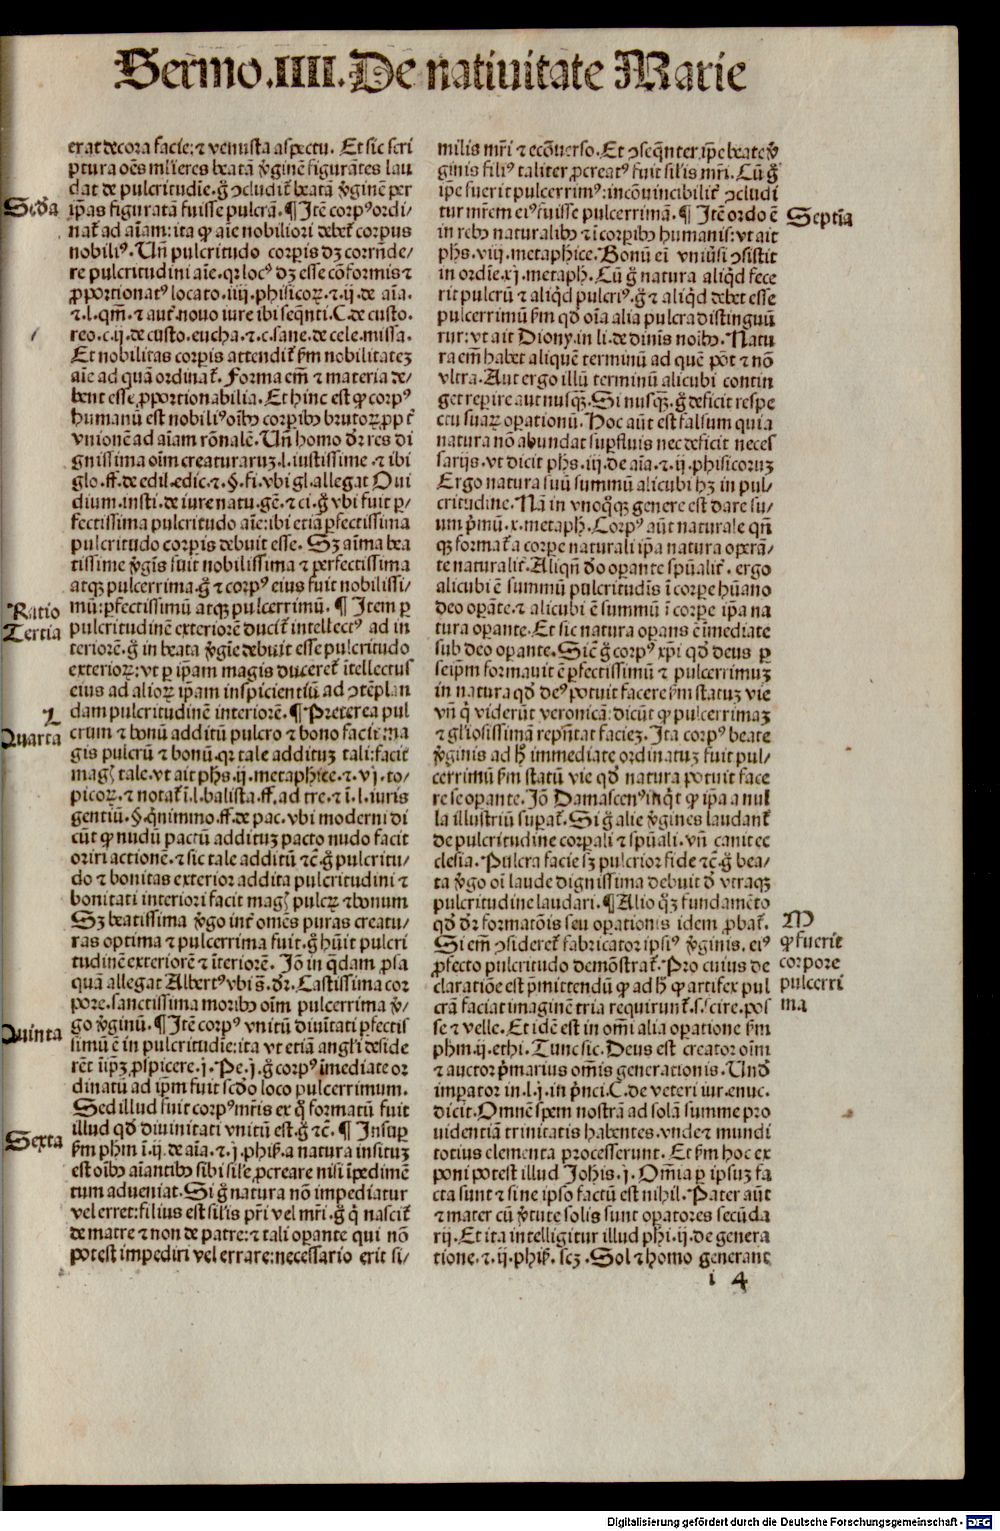 Sermo.IIII.De natiuitate Marie
erat decora facie: ⁊ venusta aspectu. Et sic scri
ptura oẽs mlieres beatã v̾ginẽ figurãtes lau
dat de pulcritudĩe. g̃ ꝯcludit̃ beatã v̾ginẽ per
Scḋa
ip̃as figuratã fuisse pulcrã. ¶ Itẽ corpꝰ ordi-
nat̃ ad aĩam: ita ꝙ aĩe nobiliori debet̃ corpus
nobiliꝰ. Un̄ pulcritudo corpis dꝫ corrñde/
re pulcritudini aĩe. qꝛ locꝰ dꝫ esse cõformis ⁊
ꝓportionatꝰ locato. iiij. phisicoꝝ. ⁊. ij. de aĩa.
⁊. l. qm̃. ⁊ aut̃. nouo iure ibi seqñti. C. de custo.
reo. c. ij. de custo. eucha. ⁊. c. sane. de cele. missa.
Et nobilitas corpis attendit̃ ẜm nobilitateꝫ
aĩe ad quã ordinat̃. Forma em̃ ⁊ materia de/
bent esse ꝓportionabilia. Et hinc est ꝙ corpꝰ
humanũ est nobiliꝰ oĩbꝫ corpibꝫ brutoꝝ ꝓpt̃
vnionẽ ad aĩam rõnalẽ. Un̄ homo dr̃ res di
gnissima oĩm creaturaruꝫ. l. iustissime. ⁊ ibi
glo. ff. de edil. edic. ⁊. §. fi. vbi gl. allegat Oui
dium. insti. de iure natu. gẽ. ⁊ ci. g̃ vbi fuit ꝑ/
fectissima pulcritudo aĩe: ibi etiã ꝑfectissima
pulcritudo corpis debuit esse. Sꝫ aĩma bea
tissime v̾gĩs fuit nobilissima ⁊ perfectissima
atqꝫ pulcerrima. g̃ ⁊ corpꝰ eius fuit nobilissi/
Ratio
Tertia
mũ: ꝑfectissimũ atqꝫ pulcerrimũ. ¶ Item ꝑ
pulcritudinẽ exteriorẽ ducit̃ intellectꝰ ad in
teriorẽ. g̃ in beata v̾gĩe debuit esse pulcritudo
exterioꝝ: vt ꝑ ip̃am magis duceret̃ ĩtellectus
eius ad alioꝝ ip̃am inspicientiũ ad ꝯtẽplan
L
Quarta
dam pulcritudinẽ interiorẽ. ¶ Preterea pul
crum ⁊ bonũ additũ pulcro ⁊ bono facit ma
gis pulcrũ ⁊ bonũ. qꝛ tale addituꝫ tali: facit
mag̃ tale. vt ait phs. ij. metaphice. ⁊. vj. to/
picoꝝ. ⁊ notat̃ ĩ. l. balista. ff. ad tre. ⁊ ĩ. l. iuris
gentiũ. §. q̃nimmo. ff. de pac. vbi moderni di
cũt ꝙ nudũ pactũ addituꝫ pacto nudo facit
oriri actionẽ. ⁊ sic tale additũ ⁊c̃. g̃ pulcritu/
do ⁊ bonitas exterior addita pulcritudini ⁊
bonitati interiori facit mag̃ pulcꝝ ⁊ bonum
Sꝫ beatissima v̾go int̃ omẽs puras creatu/
ras optima ⁊ pulcerrima fuit. g̃ hũit pulcri
tudinẽ exteriorẽ ⁊ ĩteriorẽ. Jõ in q̃dam ꝓsa
quã allegat Albertꝰ vbi s̃. dr̃. Castissima cor
pore. sanctissima moribꝫ oĩm pulcerrima v̾/
Quinta
go v̾ginũ. ¶ Itẽ corpꝰ vnitũ diuĩtati ꝑfectis
simũ ẽ in pulcritudĩe: ita vt etiã angl̃i deside
rẽt iĩpꝫ ꝓspicere. j. Pe. j. g̃ corpꝰ ĩmediate or
dinatũ ad ip̃m fuit scḋo loco pulcerrimum.
Sed illud fuit corpꝰ mr̃is ex q̃ formatũ fuit
illud qḋ diuinitati vnitũ est. g̃ ⁊c̃. ¶ Insuꝑ
Sexta
ẜm phm ĩ. ij. de aĩa. ⁊. j. phiẜ. a natura insituꝫ
est oĩbꝫ aĩantibꝫ sibi sil̃e ꝓcreare nisi ĩpedimẽ
tum adueniat. Si g̃ natura nõ impediatur
vel erret: filius est sil̃is pr̃i vel mr̃i. g̃ q̃ nascit̃
de matre ⁊ non de patre: ⁊ tali oꝑante qui nõ
potest impediri vel errare: necessario erit si/
milis mr̃i ⁊ ecõuerso. Et ꝯseq̃nter ip̃e beate v̾
ginis filiꝰ taliter ꝓcreatꝰ fuit sil̃is mr̃i. Cũ g̃
ip̃e fuerit pulcerrimꝰ: incõuincibilit̃ ꝯcludi
tur mr̃em eiꝰ fuisse pulcerrimã. ¶ Itẽ ordo ẽ
Septĩa
in rebꝫ naturalibꝫ ⁊ ĩ corpibꝫ humanis: vt ait
phs. viij. metaphice. Bonũ ei vniũsi ꝯsistit
in ordĩe. xj. metaph. Cũ g̃ natura aliq̃d fece
rit pulcrũ ⁊ aliq̃d pulcriꝰ. g̃ ⁊ aliq̃d debet esse
pulcerrimũ ẜm qḋ oĩa alia pulcra distinguũ
tur: vt ait Diony. in li. de diuĩs noĩbꝫ. Natu
ra em̃ habet aliquẽ terminũ ad quẽ põt ⁊ nõ
vltra. Aut ergo illũ terminũ alicubi contin
get reꝑire aut nusq̃ꝫ. Si nusq̃ꝫ. g̃ deficit respe
ctu suaꝝ oꝑationũ. Hoc aũt est falsum quia
natura nõ abundat suꝑfluis nec deficit neces
sarijs. vt dicit phs. iij. de aĩa. ⁊. ij. phisicoruꝫ
Ergo natura suũ summũ alicubi hꝫ in pul/
critudine. Nã in vnoq̃qꝫ genere est dare su/
um p̃mũ. x. metaph. Corpꝰ aũt naturale qñ
qꝫ format̃ a corꝑe naturali ip̃a natura oꝑerã/
te naturalit̃. Aliqñ ḋo oꝑante sp̃ualit̃. ergo
alicubi ẽ summũ pulcritudĩs ĩ corꝑe hũano
deo oꝑãte. ⁊ alicubi ẽ summũ ĩ corꝑe ip̃a na
tura oꝑante. Et sic natura oꝑans ẽ ĩmediate
sub deo oꝑante. Sic̃ g̃ corpꝰ xp̃i qḋ deus ꝑ
seip̃m formauit ẽ ꝑfectissimũ ⁊ pulcerrimuꝫ
in natura qḋ deꝰ potuit facere ẜm statuꝫ vie
vñ q̃ viderũt veronicã: dicũt ꝙ pulcerrimaꝫ
⁊ gl̃iosissimã rep̃ñtat facieꝫ. Ita corpꝰ beate
v̾ginis ad h̃ immediate ordinatuꝫ fuit pul/
cerrimũ ẜm statũ vie qḋ natura potuit face
re se oꝑante. Jõ Damascenꝰ inq̃t ꝙ ip̃a a nul
la illustriũ suꝑat̃. Si g̃ alie v̾gines laudant̃
de pulcritudine corꝑali ⁊ sp̃uali. vñ canit ec
clesia. Pulcra facie sꝫ pulcrior fide ⁊c̃. g̃ bea/
ta v̾go oĩ laude dignissima debuit ḋ vtraqꝫ
pulcritudine laudari. ¶ Alio q̃ꝫ fundamẽto
M
ꝙ fuerit
corpore
pulcerri
ma
qḋ dr̃ formatõis seu oꝑationis idem ꝓbat̃.
Si em̃ ꝯsideret̃ fabricator ipsiꝰ v̾ginis. eiꝰ
ꝓfecto pulcritudo demõstrat̃. Pro cuius de
claratiõe est p̃mittendũ ꝙ ad h̃ ꝙ artifex pul
crã faciat imaginẽ tria requirunt̃. s. scire. pos
se ⁊ velle. Et idẽ est in om̃i alia oꝑatione ẜm
phm. ij. ethi. Tunc sic. Deus est creator oĩm
⁊ auctor p̃marius om̃is generationis. Unḋ
imꝑator in. l. j. in p̃nci. C. de veteri iur. enuc.
dicit. Omnẽ spem nostrã ad solã summe pro
uidentiã trinitatis habentes. vnde ⁊ mundi
totius elementa processerunt. Et ẜm hoc ex
poni potest illud Johis. j. Om̃ia ꝑ ipsuꝫ fa
cta sunt ⁊ sine ipso factũ est nihil. Pater aũt
⁊ mater cũ v̾tute solis sunt oꝑatores secũda
rij. Et ita intelligitur illud phi. ij. de genera
tione. ⁊. ij. phiẜ. scꝫ. Sol ⁊ homo generant
i 4
Digitalisierung gefördert durch die Deutsche Forschungsgemeinschaft - DFG